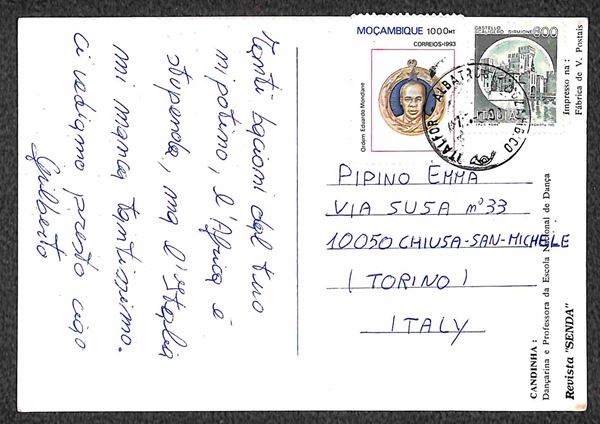 Tanti bacioni dal tuo
nipotino, l'Africa è
stupenda, ma l'Italia
mi manca tantissimo.
Ci vediamo presto ciao
Gilberto
MOÇAMBIQUE 1000MT
CORREIOS-1993
Ordem Eduardo Mondlane
CASTELLO
SCALIGERO SIRMIONE
800
ITALIA
ITALFOR - ALBATROS
PIPINO EMMA
VIA SUSA n° 33
10050 CHIUSA-SAN-MICHELE
(TORINO)
ITALY
Impresso na:
Fábrica de V. Postais
CANDINHA:
Dançarina e Professora da Escola Nacional de Dança
Revista "SENDA"